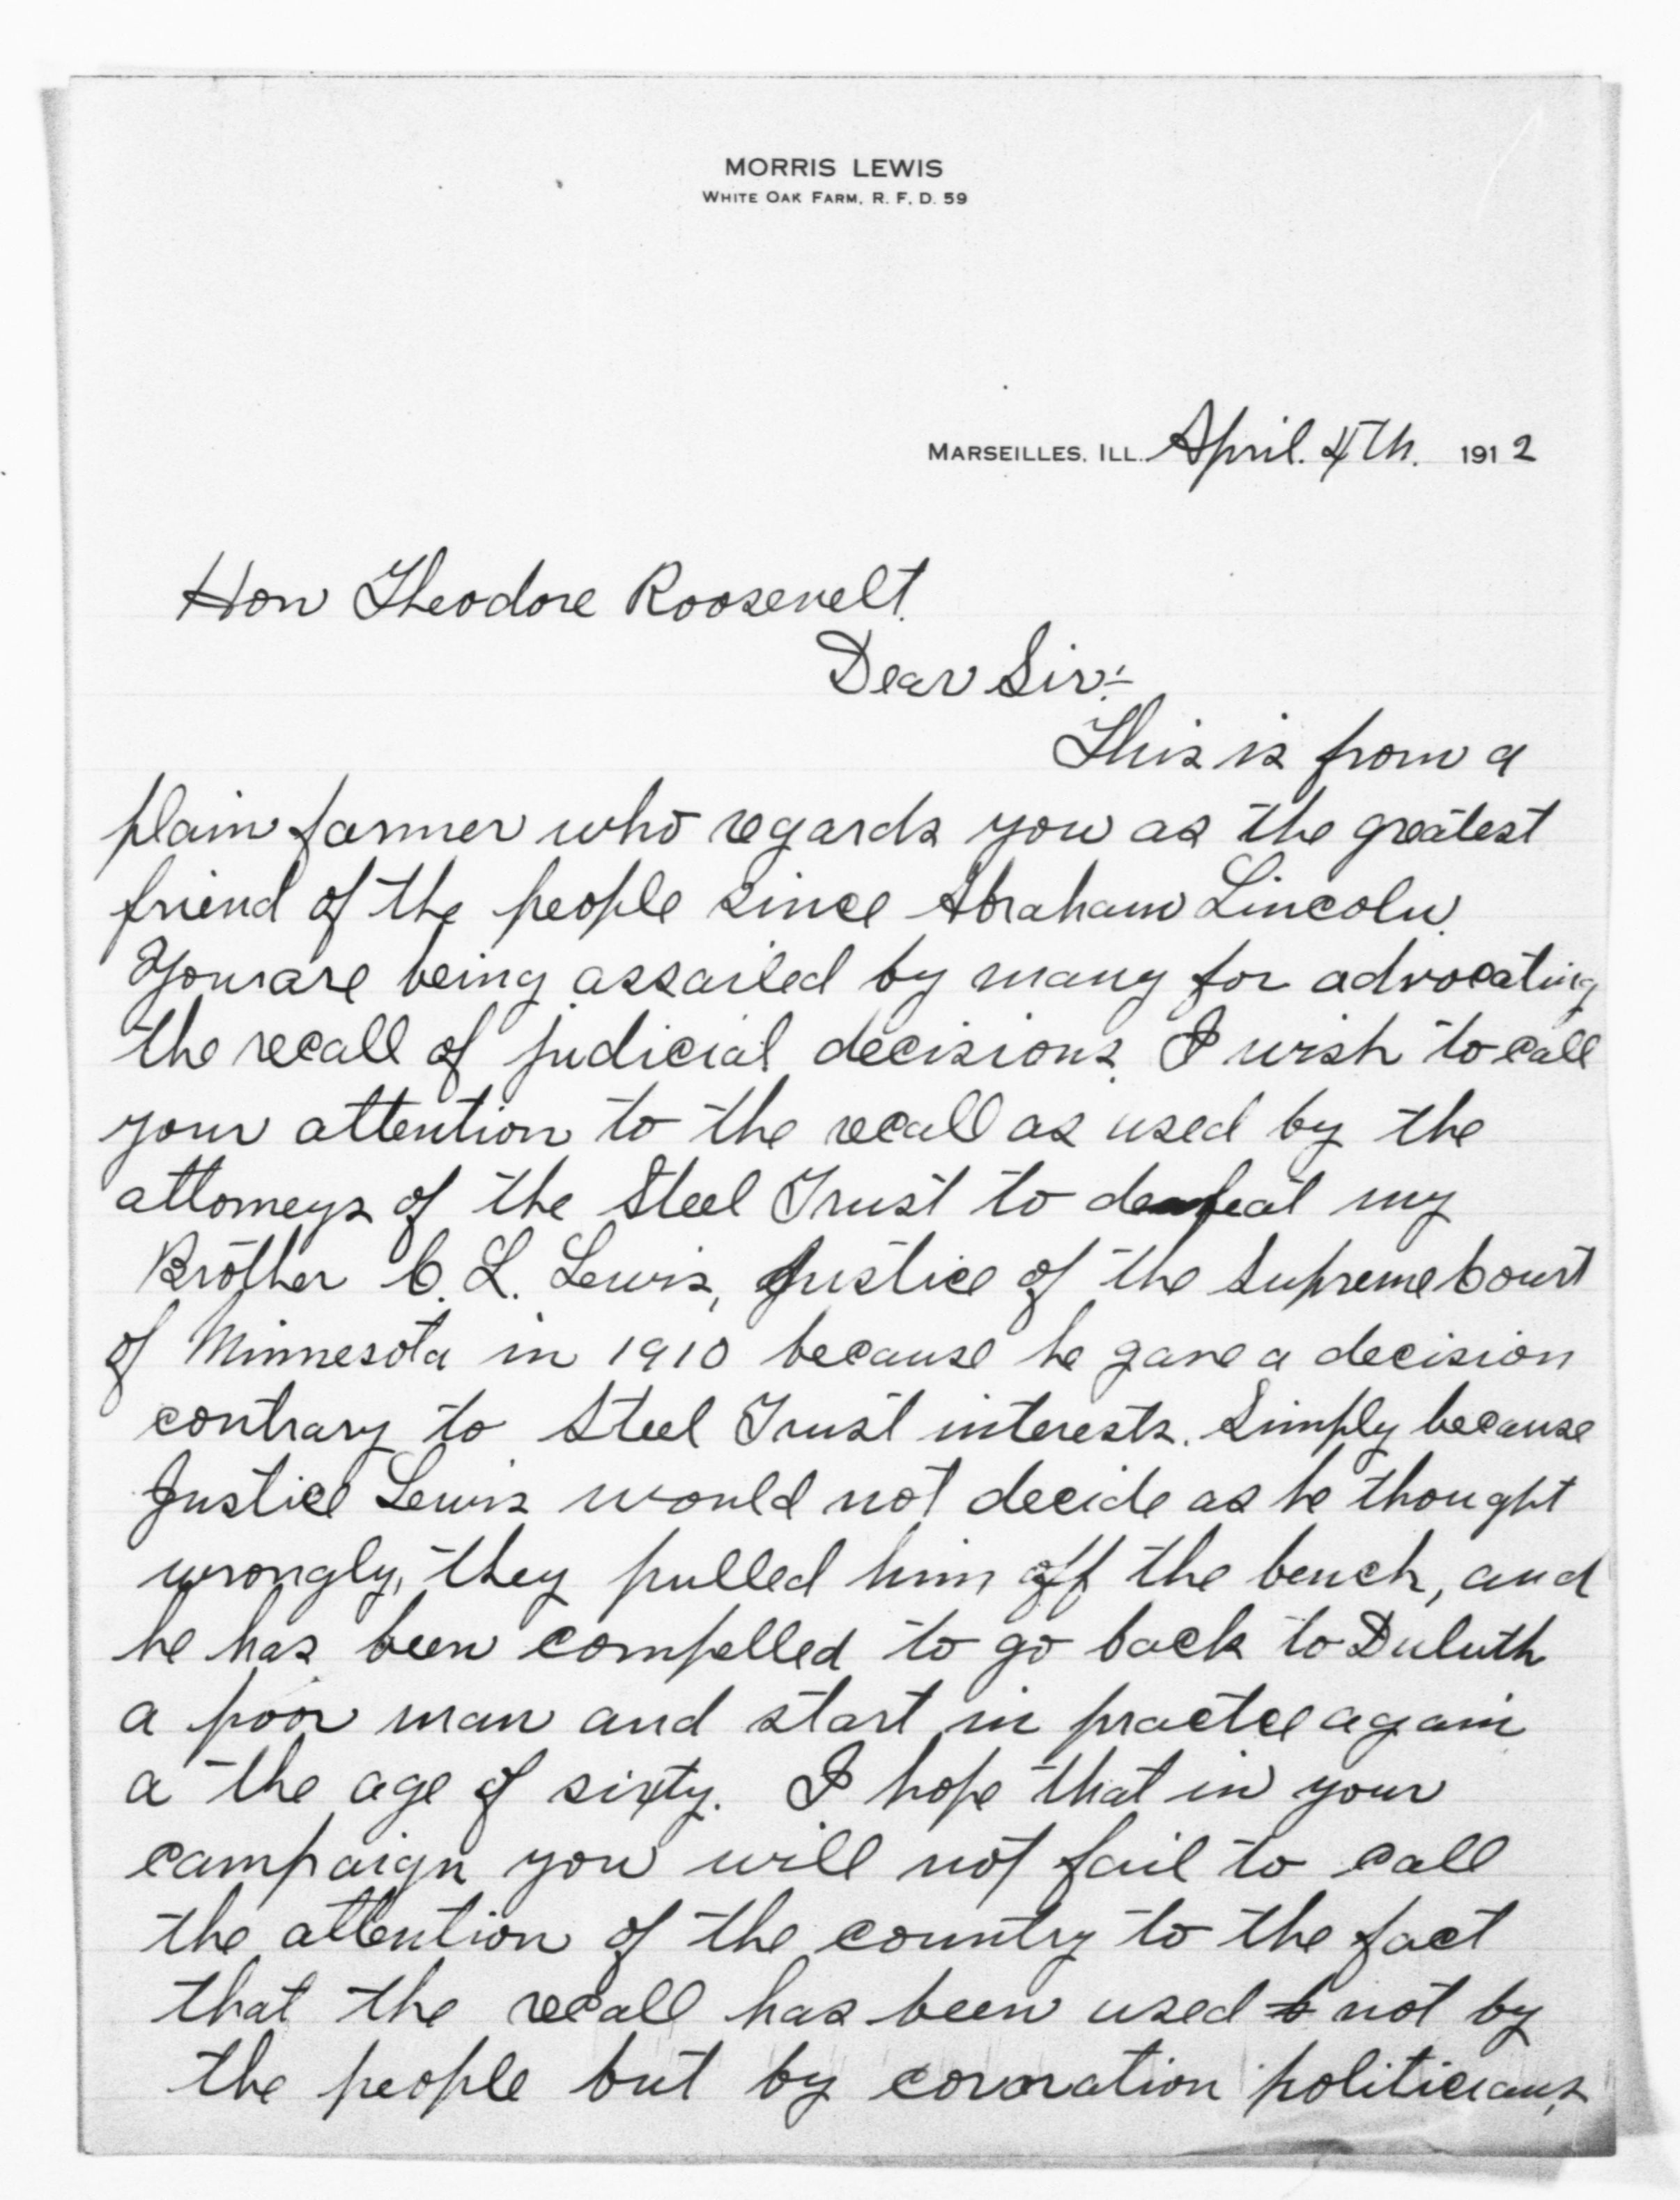 MORRIS LEWIS
WHITE OAK FARM, R. F. D. 59
MARSEILLES, ILL. April. 4Th. 1912
Hon Theodore Roosevelt.
Dear Sir:-
This is from a
plain farmer who regards you as the greatest
friend of the people since Abraham Lincoln.
You are being assailed by many for advocating
the recall of judicial decisions. I wish to call
your attention to the recall as used by the
attorneys of the Steel Trust to defeat my
Brother C. L. Lewis, Justice of the Supreme Court
of Minnesota in 1910 because he gave a decision
contrary to Steel Trust interests. Simply because
Justice Lewis would not decide as he thought
wrongly, they pulled him off the bench, and
he has been compelled to go back to Duluth
a poor man and start in practce again
a the age of sixty. I hope that in your
campaign you will not fail to call
the attention of the country to the fact
that the recall has been used not by
the people but by cororation politicians,